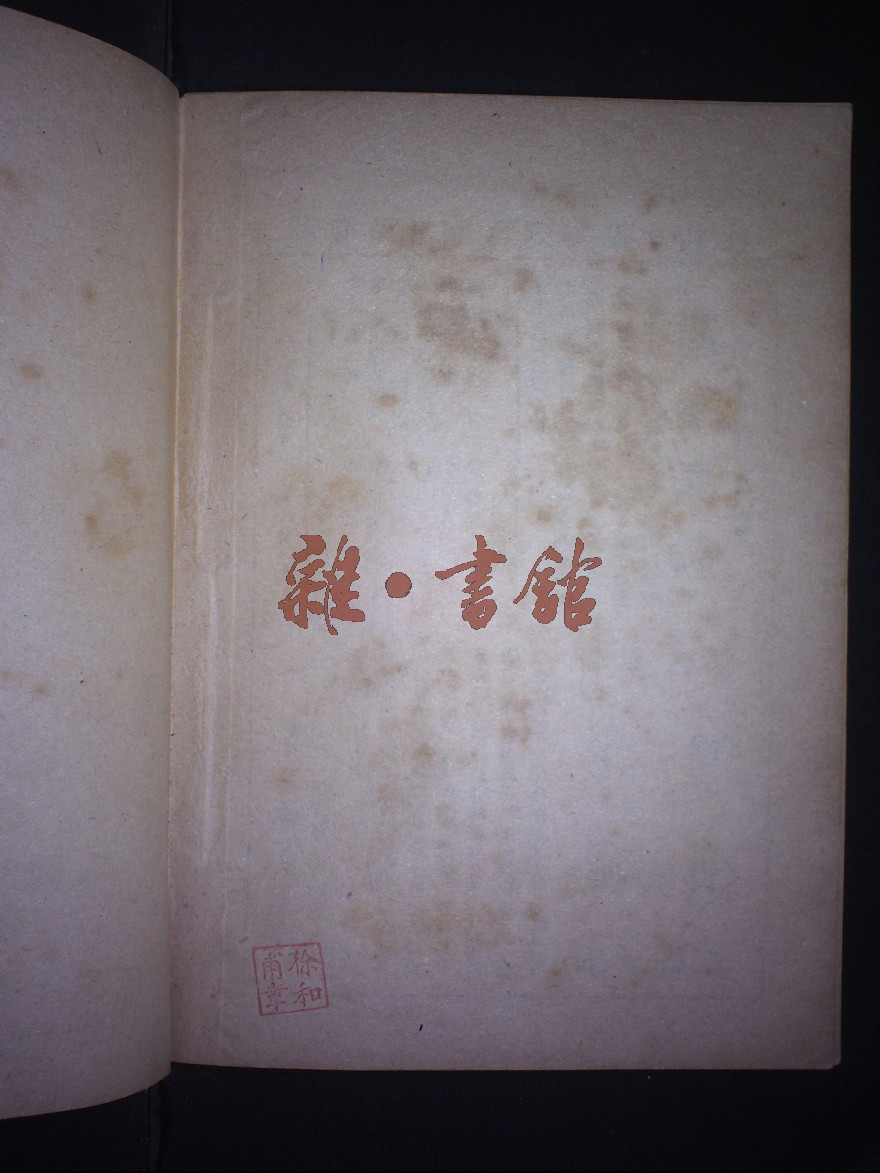 雜·書館
徐和
甫章